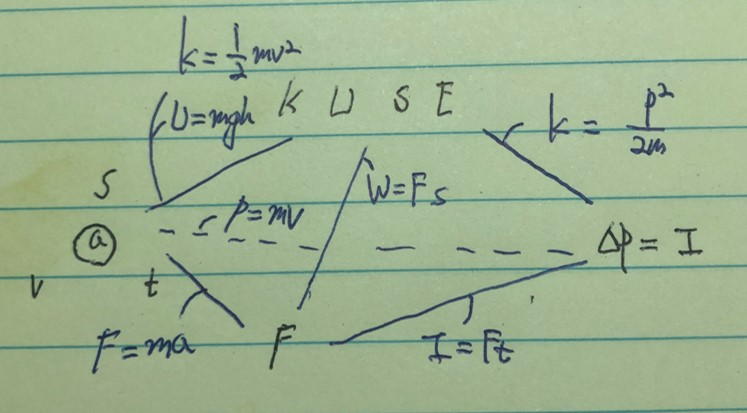 k = 1/2 mv²
U = mgh
K U S E
k = p²/2m
S
W = Fs
p = mv
ⓐ
Δp = I
v t
F = ma
F
I = Ft